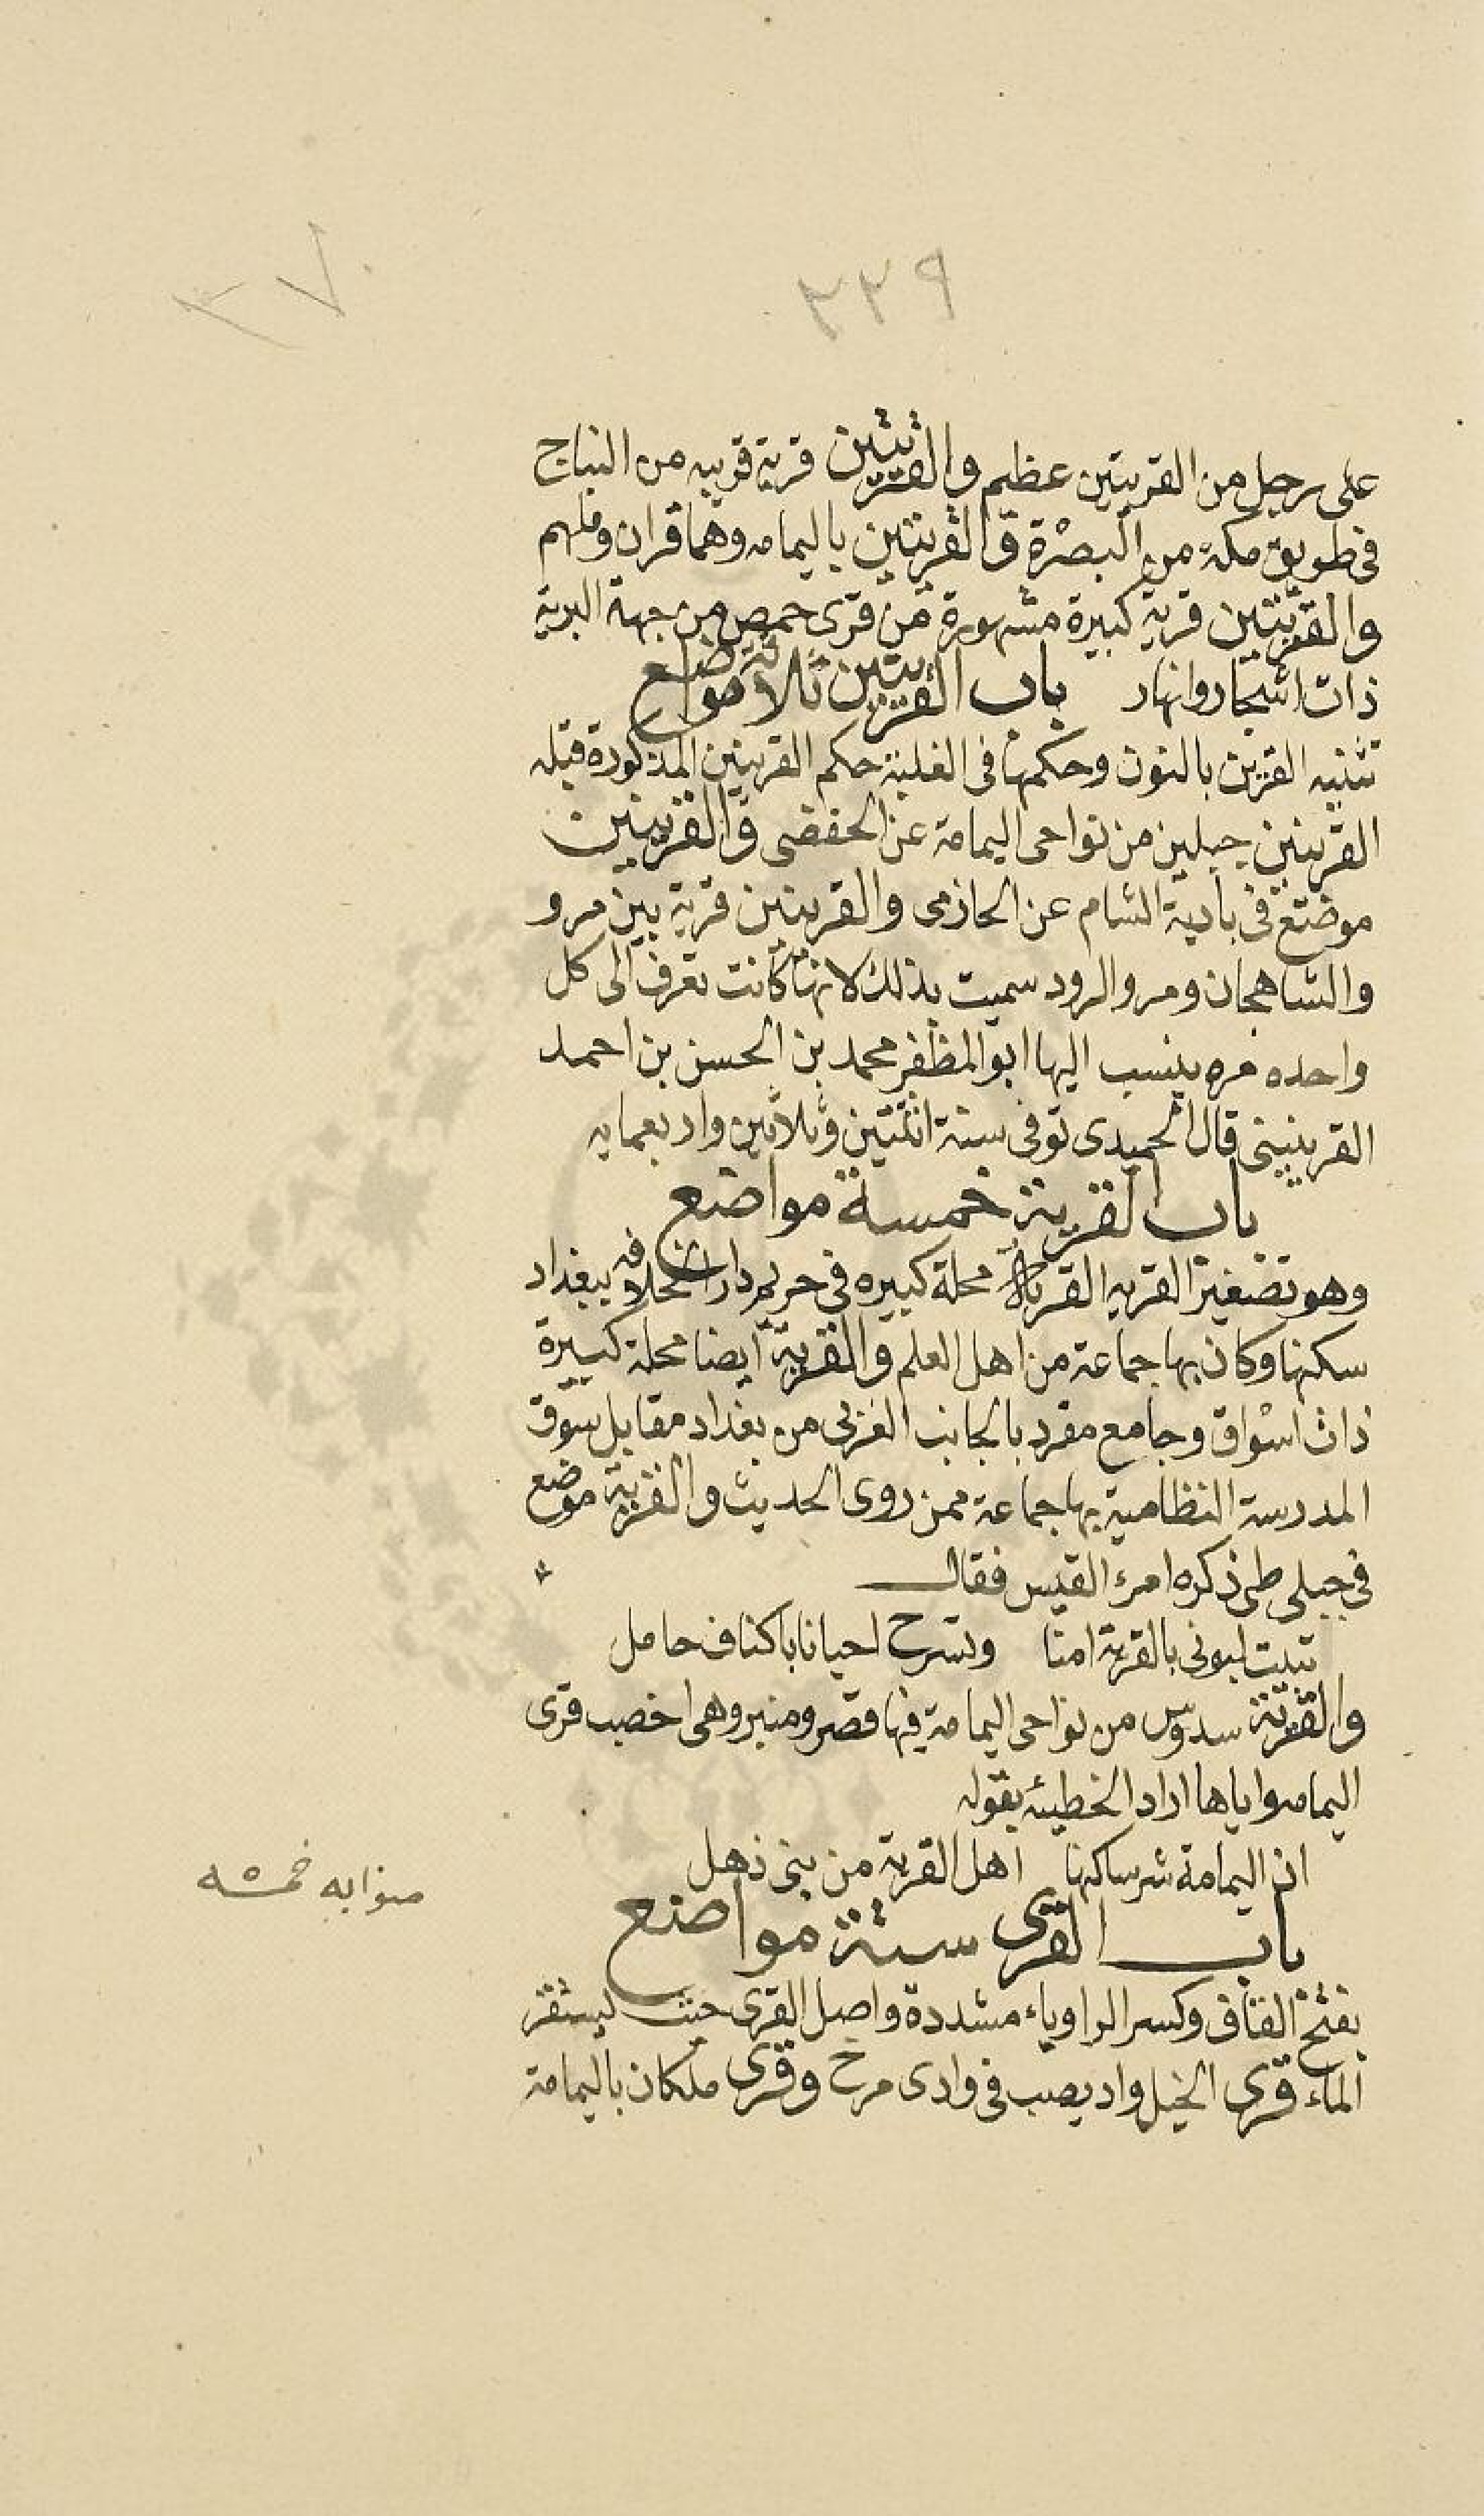 ٣٧٠
٣٢٩
على رجل من القريتين عظيم والقريتين قرية قريبه من النباج
فى طريق مكة من البصرة والقريتين باليمامه وهما قران وملهم
والقريتين قرية كبيرة مشهورة من قرى حمص من جهة البرية
ذات اشجار وانهار باب القرينين ثلاثة مواضع
تثنيه القرين بالنون وحكمها فى الغلبة حكم القريتين المذكورة قبله
القرينين جبلين من نواحى اليمامة عن الحفصى والقرينين
موضع فى بادية الشام عن الحازمى والقرينين قرية بين مرو
والشاهجان ومرو الرود سميت بذلك لانها كانت تعرف الى كل
واحده مره ينسب اليها ابو المظفر محمد بن الحسن بن احمد
القرينينى قال الحميدى توفى سنة اثنتين وثلاثين واربعمايه
باب القرية خمسة مواضع
وهو تصغير القريه القرية محلة كبيره فى حريم دار الخلافه ببغداد
سكنها وكان بها جماعة من اهل العلم والقرية ايضا محلة كبيرة
ذات اسواق وجامع مفرد بالجانب الغربى من بغداد مقابل سوق
المدرسة النظامية بها جماعة ممن روى الحديث والقرية موضع
فى جبلى طى ذكره امرء القيس فقال
تبيت لبونى بالقرية امنا وتسرح احيانا باكناف حامل
والقرية سدوس من نواحى اليمامة فيها قصر ومنبر وهى اخصب قرى
اليمامه واياها اراد الخطيئة بقوله
ان اليمامة شر ساكنها اهل القرية من بنى ذهل
صوابه خمسه
باب القرى ستة مواضع
بفتح القاف وكسر الرا وياء مشددة واصل القرى حيث يستقر
الماء قرى الخيل واد يصب فى وادى مرخ وقرى ملكان باليمامة